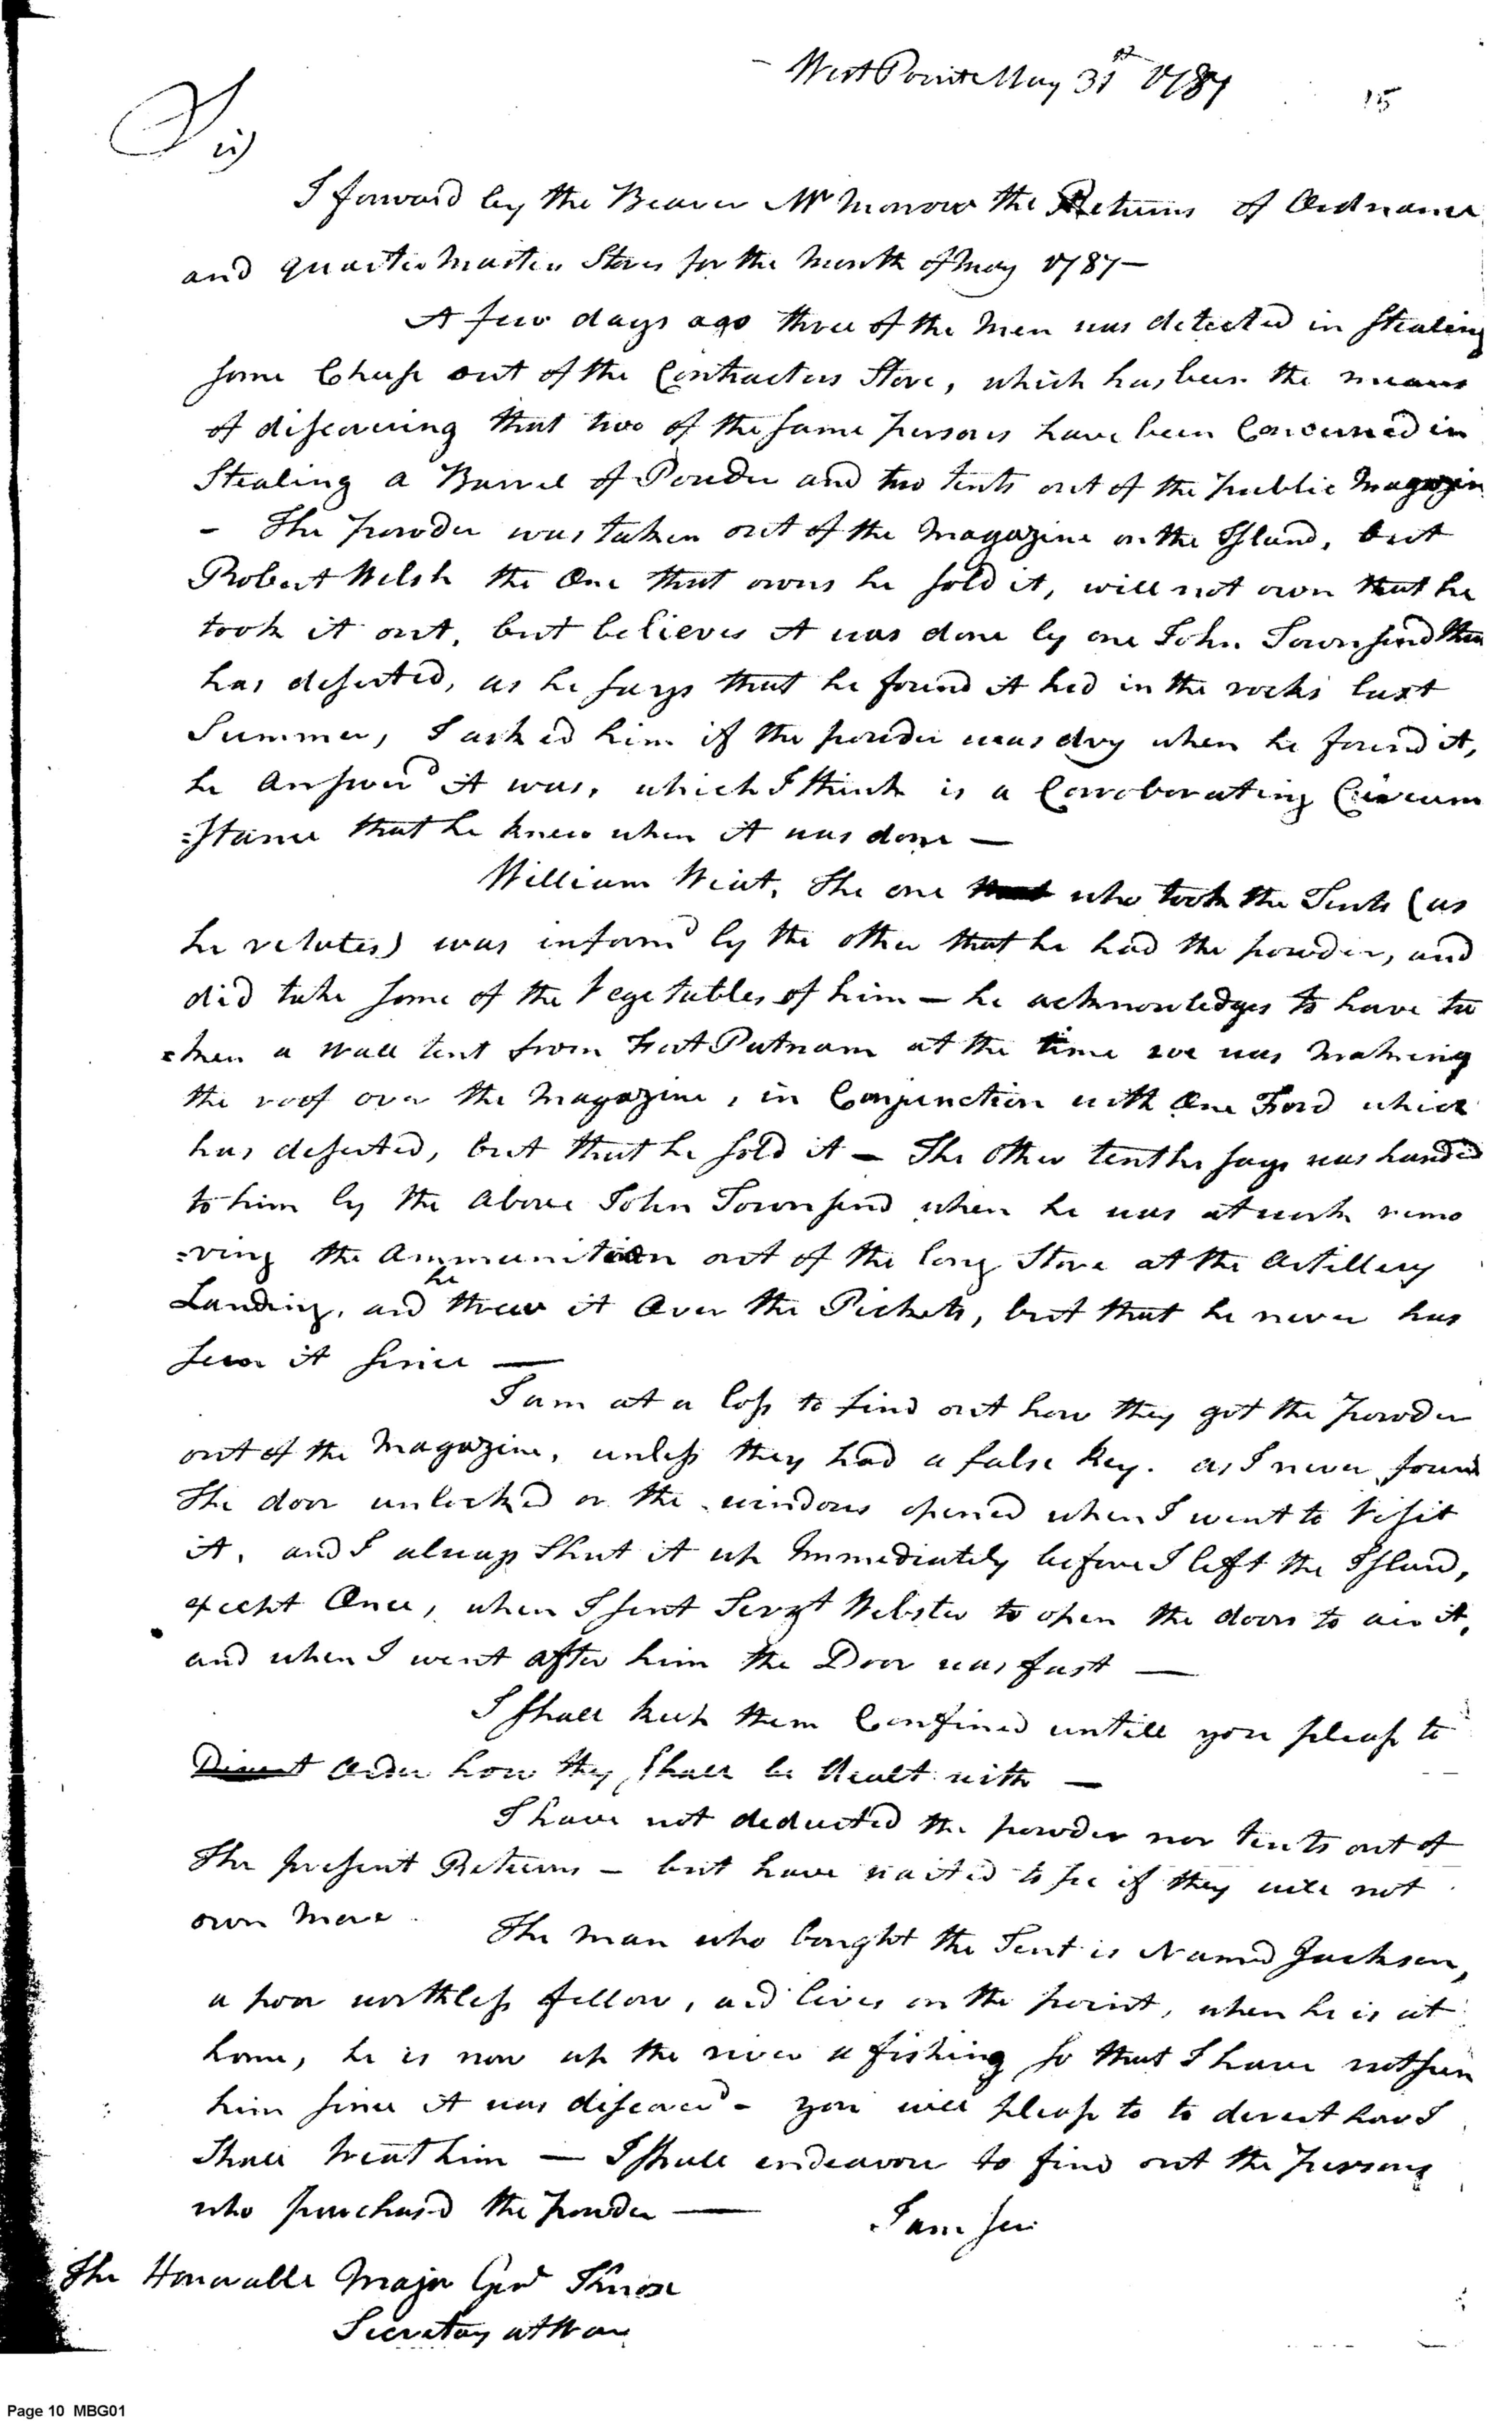 West Point May 31st 1787
15
Sir
I forward by the Bearer Mr Morrow the Returns of Ordnance
and quarter Masters Stores for the Month of May 1787—
A few days ago three of the Men was detected in Stealing
some Cheese out of the Contractors Store, which has been the means
of discovering that two of the same persons have been Concerned in
Stealing a Barrel of Powder and two tents out of the public Magazin
- The powder was taken out of the Magazine on the Island, but
Robert Welsh the One that owns he sold it, will not own that he
took it out, but believes it was done by one John Townsend
has deserted, as he says that he found it hid in the rocks last
Summer, I asked him if the powder was dry when he found it,
he Answerd it was, which I think is a Corroborating Circum
=stance that he knew when it was done —
William Wiat, The one who took the Tents (as
he relates) was informd by the other that he had the powder, and
did take some of the Vegetables of him — he acknowledges to have ta
=ken a Wall tent from Fort Putnam at the time we was Making
the roof over the Magazine, in Conjunction with One Ford which
has deserted, but that he sold it — The other tent he says was handed
to him by the Above John Townsend when he was at work remo
=ving the Ammunition out of the long Store at the Artillery
Landing, and he threw it Over the Pickets, but that he never has
seen it since —
I am at a loss to find out how they got the powder
out of the Magazine, unless they had a false Key. as I never found
The door unlocked or the windows opened when I went to Visit
it, and I always Shut it up Immediately before I left the Island,
except Once, when I sent Sergt Webster to open the doors to air it,
and when I went After him the Door was fast —
I shall keep them Confined untill you please to
Direct Order how they shall be dealt with —
I have not deducted the powder nor tents out of
The present Returns — but have waited to see if they will not
own More.
The Man who bought the Tent is Named Jackson,
a poor worthless fellow, and lives on the point, when he is at
home, he is now up the river a fishing so that I have not seen
him since it was discoverd - you will please to to derect how I
Shall treat him — I shall endeavour to find out the persons
who purchasd the powder —
I am Sir
The Honorable Major Genl Knox
Secretary at War
Page 10 MBG01